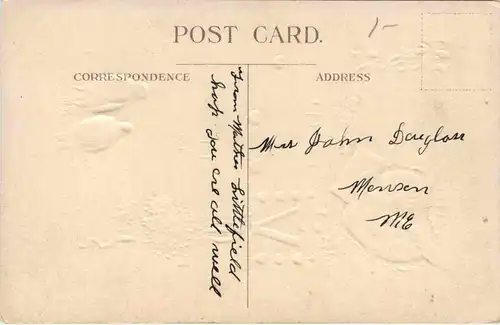 1-
POST CARD.
CORRESPONDENCE
ADDRESS
from Mother Littlefield
hop you are all well
Mrs John Douglass
Monson
ME